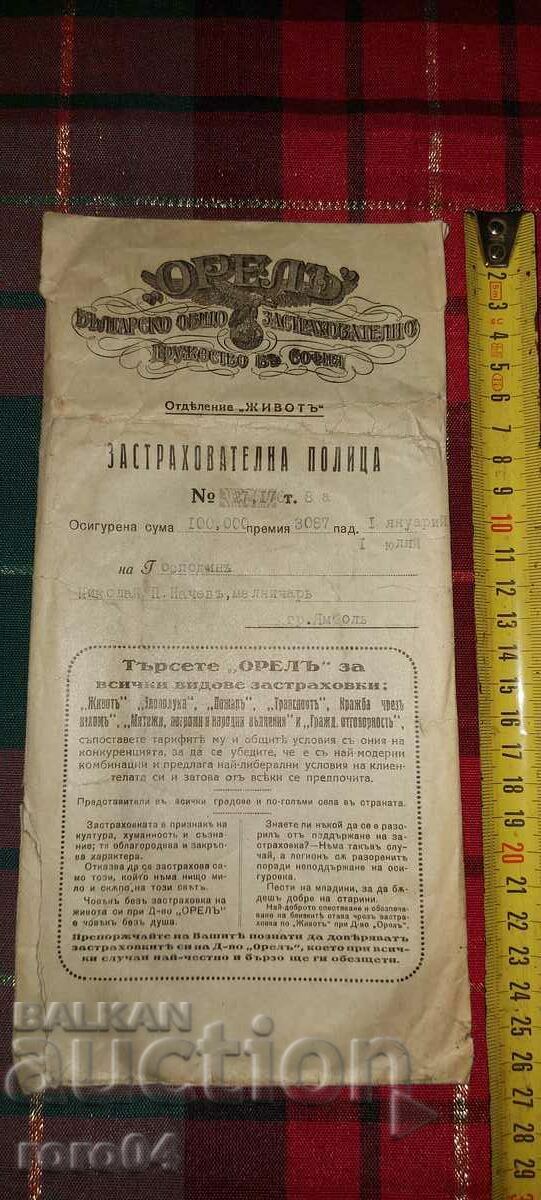 "ОРЕЛЪ"
БЪЛГАРСКО ОБЩО ЗАСТРАХОВАТЕЛНО
ДРУЖЕСТВО ВЪ СОФИЯ
Отдѣление „ЖИВОТЪ“
ЗАСТРАХОВАТЕЛНА ПОЛИЦА
№ т. 8 а
Осигурена сума 100,000 премия 3087 пад. I януарий
I юлий
на Господинъ
Николай П. Начевъ, мелничарь
гр. Ямболъ
Търсете „ОРЕЛЪ“ за
всички видове застраховки:
„Животъ“ „Злополука“, „Пожаръ“, „Транспортъ“, Кражба чрезъ
взломъ“, „Метежи, погроми и народни вълнения“ и „Гражд. отговорность“,
съпоставете тарифитѣ му и общитѣ условия съ ония на
конкуренцията, за да се убедите, че е съ най-модерни
комбинации и предлага най-либерални условия на клиен-
телата си и затова отъ всѣки се предпочита.
Представители въ всички градове и по-голѣми села въ страната.
Застраховката е признакъ на
култура, хуманность и съзна-
ние; тя облагородява и закрѣп-
ва характера.
Отказва да се застрахова са-
мо този, който нѣма нищо ми-
ло и скѫпо, на този свѣтъ.
Човѣкъ безъ застраховка на
живота си при Д-во „ОРЕЛЪ“
е човѣкъ безъ душа.
Знаете ли нѣкой да се е разо-
рилъ отъ поддържане на за-
страховка? — Нѣма такъвъ слу-
чай, а легионъ сѫ разоренитѣ
поради неподдържане на оси-
гуровка.
Пести на младини, за да бѫ-
дешъ добре на старини.
Най-доброто спестяване и обезпеча-
ване на близкитѣ става чрезъ застра-
ховка по „Животъ“ при Д-во „Орелъ“.
Препорѫчайте на Вашитѣ познати да довѣряватъ
застраховкитѣ си на Д-во „Орелъ“, което при всич-
ки случаи най-честно и бързо ще ги обезщети.
BALKAN
auction
roro04
2
3
4
5
6
7
8
9
10
11
12
13
14
15
16
17
18
19
20
21
22
23
24
25
26
27
28
29